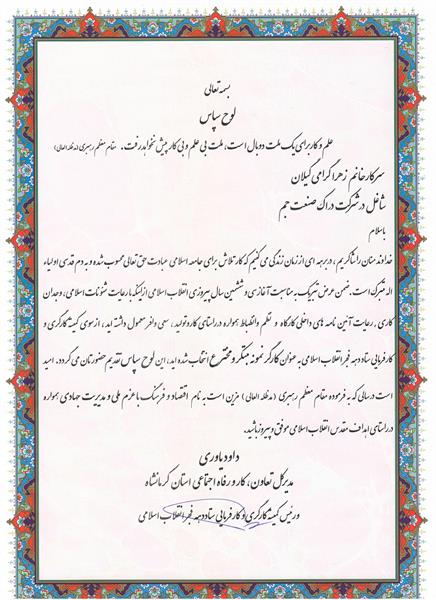 بسمه تعالی
لوح سپاس
علم و کار برای یک ملت دو بال است، ملت بی علم و بی کار پیش نخواهد رفت. مقام معظم رهبری (مدظله العالی)
سرکار خانم زهرا گرامی گیلان
شاغل در شرکت دراک صنعت جم
باسلام
خداوند منان را شاکریم، در برهه ای از زمان زندگی می کنیم که کار و تلاش برای جامعه اسلامی عبادت حق تعالی محسوب شده و به دم قدسی اولیاء
اله متبرک است. ضمن عرض تبریک به مناسبت آغاز سی و ششمین سال پیروزی انقلاب اسلامی از اینکه با رعایت شئونات اسلامی، وجدان
کاری، رعایت آئین نامه های داخلی کارگاه و نظم و انضباط همواره در راستای کار و تولید، سعی وافر معمول داشته اید، از سوی کمیته کارگری و
کارفرمایی ستاد دهه فجر انقلاب اسلامی به عنوان کارگر نمونه مبتکر و مخترع انتخاب شده اید، این لوح سپاس تقدیم حضورتان می گردد. امید
است در سالی که به فرموده مقام معظم رهبری (مدظله العالی) مزین است به نام اقتصاد و فرهنگ با عزم ملی و مدیریت جهادی همواره
در راستای اهداف مقدس انقلاب اسلامی موفق و پیروز باشید.
داود یاوری
مدیرکل تعاون، کار و رفاه اجتماعی استان کرمانشاه
و رئیس کمیته کارگری و کارفرمایی ستاد دهه فجر انقلاب اسلامی